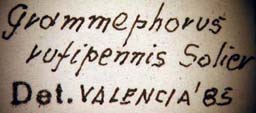 Grammephorus
rufipennis Solier
Det. VALENCIA '85